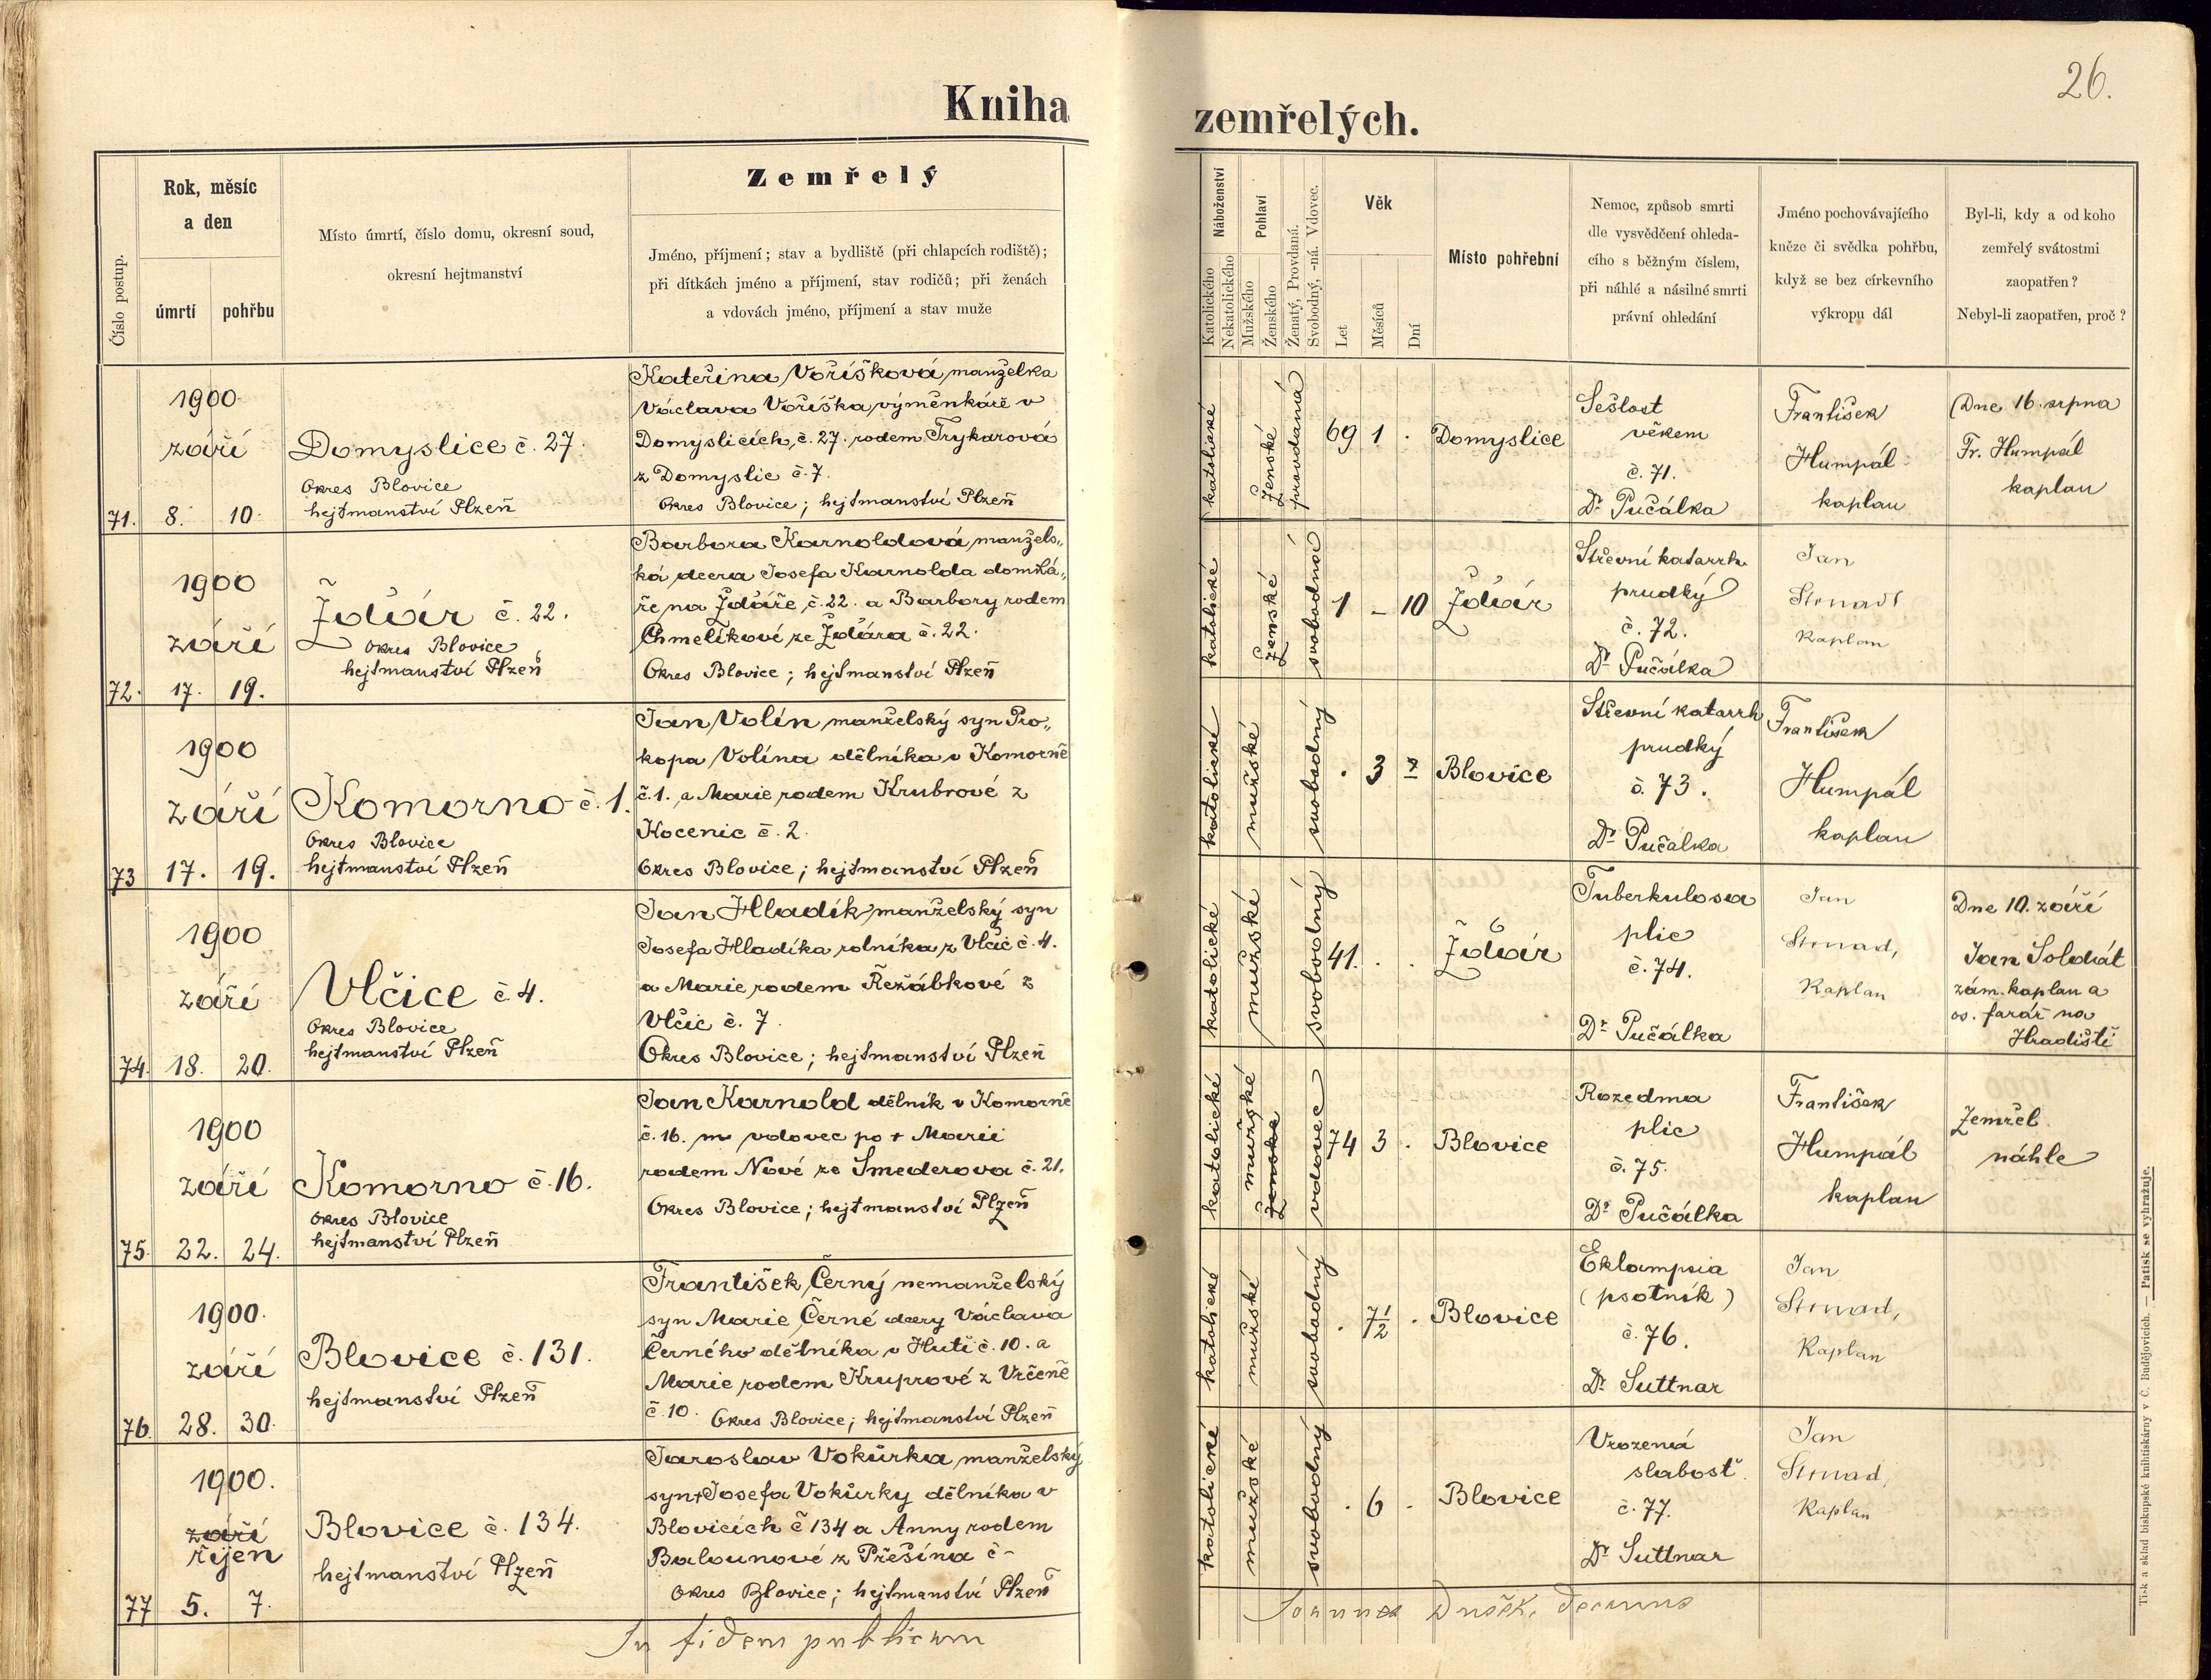 26.
Kniha zemřelých.
Číslo postup.
Rok, měsíc
a den
úmrtí
pohřbu
Místo úmrtí, číslo domu, okresní soud,
okresní hejtmanství
Zemřelý
Jméno, příjmení; stav a bydliště (při chlapcích rodiště);
při dítkách jméno a příjmení, stav rodičů; při ženách
a vdovách jméno, příjmení a stav muže
Náboženství
Katolického
Nekatolického
Pohlaví
Mužského
Ženského
Ženatý, Provdaná.
Svobodný, -ná. Vdovec.
Věk
Let
Měsíců
Dní
Místo pohřební
Nemoc, způsob smrti
dle vysvědčení ohleda-
cího s běžným číslem,
při náhlé a násilné smrti
právní ohledání
Jméno pochovávajícího
kněze či svědka pohřbu,
když se bez církevního
výkropu dál
Byl-li, kdy a od koho
zemřelý svátostmi
zaopatřen?
Nebyl-li zaopatřen, proč?
71.
1900
září
8. 10.
Domyslice č. 27.
Okres Blovice
hejtmanství Plzeň
Kateřina Voříšková, manželka
Václava Voříška, výměnkáře v
Domyslicích, č. 27. rodem Trykarová
z Domyslic č. 7.
Okres Blovice; hejtmanství Plzeň
katolické
ženské
provdaná
69 1 .
Domyslice
Sešlost
věkem
č. 71.
Dr. Pučálka
František
Humpál
kaplan
Dne 16. srpna
Fr. Humpál
kaplan
72.
1900
září
17. 19.
Ždár č. 22.
Okres Blovice
hejtmanství Plzeň
Barbora Karnoldová, manžels„
ká dcera Josefa Karnolda domká„
ře na Ždáře, č. 22. a Barbory rodem
Chmelíkové ze Ždára č. 22.
Okres Blovice; hejtmanství Plzeň
katolické
ženské
svobodná
1 – 10
Ždár
Střevní katarrh
prudký
č. 72.
Dr. Pučálka
Jan
Strnad
Kaplan
73
1900
září
17. 19.
Komorno č. 1.
Okres Blovice
hejtmanství Plzeň
Jan Volín, manželský syn Pro„
kopa Volína dělníka v Komorně
č. 1. a Marie rodem Krubrové z
Kocenic č. 2.
Okres Blovice; hejtmanství Plzeň
katolické
mužské
svobodný
. 3
Blovice
Střevní katarrh
prudký
č. 73.
Dr. Pučálka
František
Humpál
kaplan
74.
1900
září
18. 20.
Vlčice č. 4.
Okres Blovice
hejtmanství Plzeň
Jan Hladík, manželský syn
Josefa Hladíka rolníka z Vlčic č. 4.
a Marie rodem Řežábkové z
Vlčic č. 7.
Okres Blovice; hejtmanství Plzeň
katolické
mužské
svobodný
41. . .
Ždár
Tuberkulosa
plic
č. 74.
Dr. Pučálka
Jan
Strnad,
Kaplan
Dne 10. září
Jan Soldát
zám. kaplan a
os. farář na
Hradišti
75.
1900
září
22. 24.
Komorno č. 16.
Okres Blovice
hejtmanství Plzeň
Jan Karnold dělník v Komorně
č. 16. vdovec po + Marii
rodem Nové ze Smederova č. 21.
Okres Blovice; hejtmanství Plzeň
katolické
mužské
ženské
vdovec
74 3 .
Blovice
Rozedma
plic
č. 75.
Dr. Pučálka
František
Humpál
kaplan
Zemřel
náhle
76.
1900.
září
28. 30.
Blovice č. 131.
hejtmanství Plzeň
František Černý nemanželský
syn Marie Černé dcery Václava
Černého dělníka v Huti č. 10. a
Marie rodem Kruprové z Vrčeně
č. 10. Okres Blovice; hejtmanství Plzeň
katolické
mužské
svobodný
. 7½ .
Blovice
Eklampsia
(psotník)
č. 76.
Dr. Suttnar
Jan
Strnad,
Kaplan
77
1900.
září
říjen
5. 7.
Blovice č. 134.
hejtmanství Plzeň
Jaroslav Vokůrka, manželský
syn + Josefa Vokůrky dělníka v
Blovicích č 134 a Anny rodem
Balounové z Přešína č –
Okres Blovice; hejtmanství Plzeň
katolické
mužské
svobodný
. 6 .
Blovice
Vrozená
slabost
č. 77.
Dr. Suttnar
Jan
Strnad,
Kaplan
In fidem publicam
Joannes Dušek, decanus
Tisk a sklad biskupské knihtiskárny v Č. Budějovicích. — Patisk se vyhražuje.